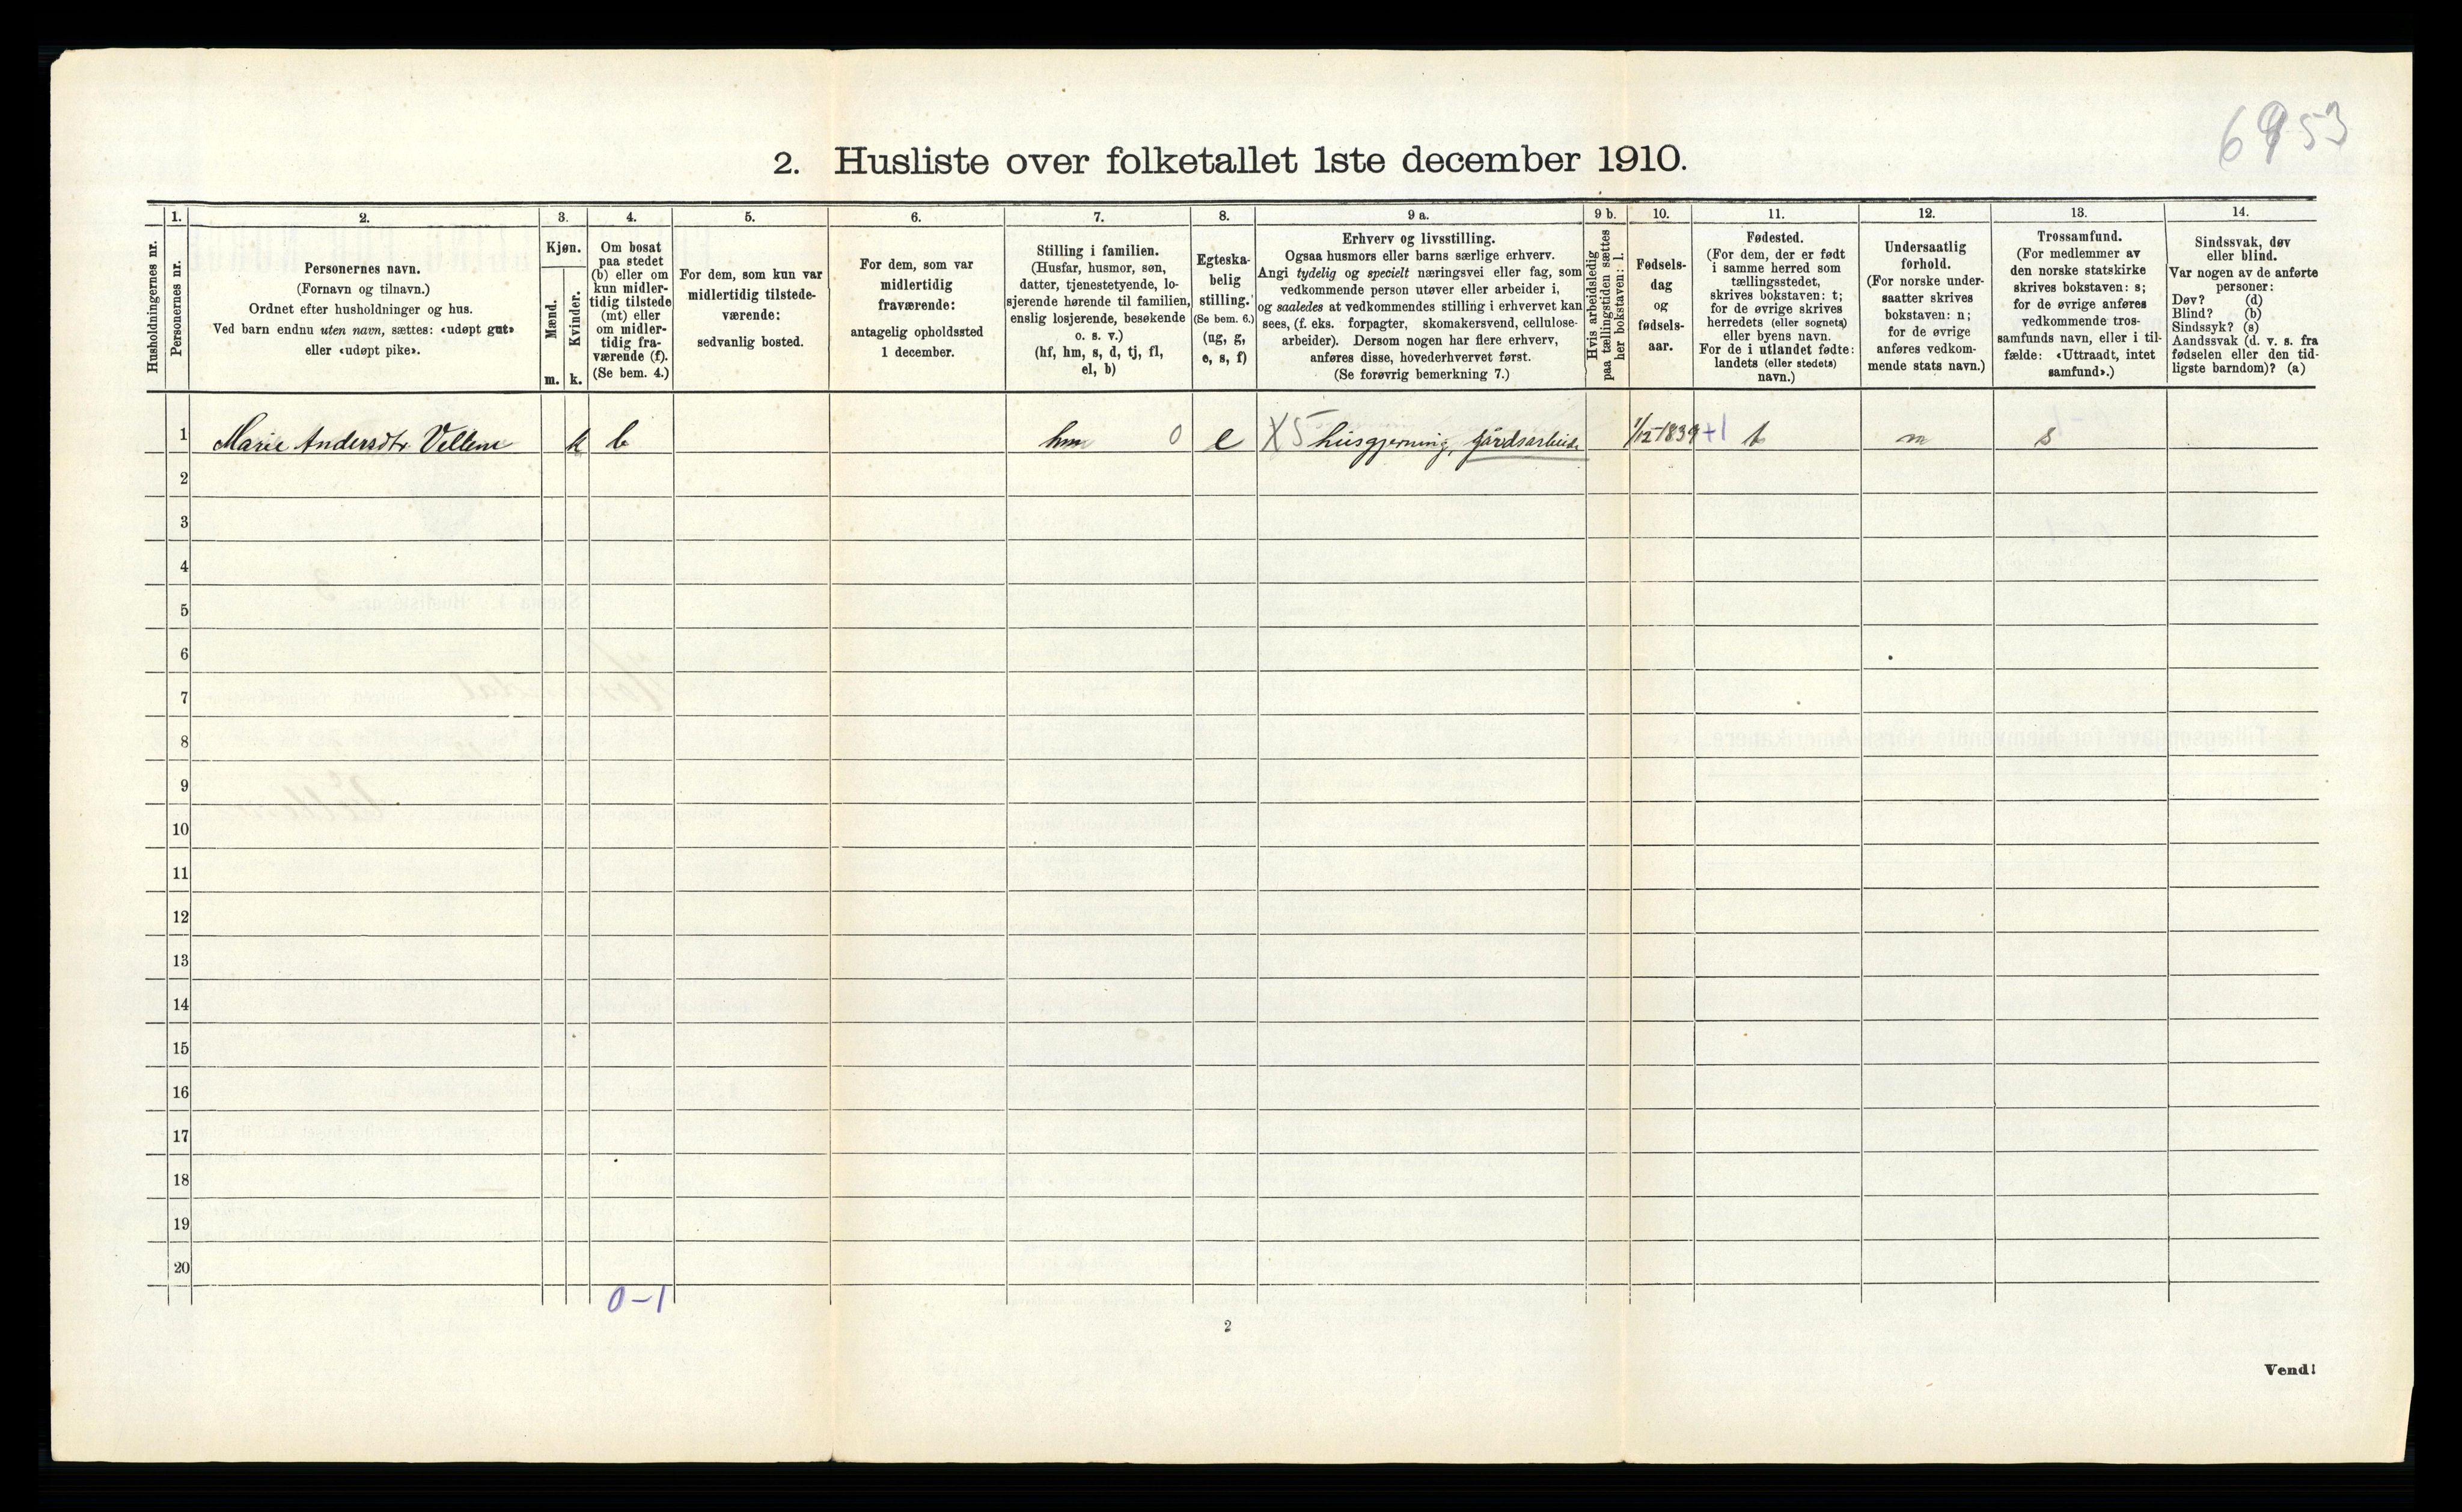 6953
2. Husliste over folketallet 1ste december 1910.
Husholdningernes nr.
1.
Personernes nr.
2.
Personernes navn.
(Fornavn og tilnavn.)
Ordnet efter husholdninger og hus.
Ved barn endnu uten navn, sættes: «udøpt gut»
eller «udøpt pike».
3.
Kjøn.
Mænd.
Kvinder.
m.
k.
4.
Om bosat
paa stedet
(b) eller om
kun midler-
tidig tilstede
(mt) eller
om midler-
tidig fra-
værende (f).
(Se bem. 4.)
5.
For dem, som kun var
midlertidig tilstede-
værende:
sedvanlig bosted.
6.
For dem, som var
midlertidig
fraværende:
antagelig opholdssted
1 december.
7.
Stilling i familien.
(Husfar, husmor, søn,
datter, tjenestetyende, lo-
sjerende hørende til familien,
enslig losjerende, besøkende
o. s. v.)
(hf, hm, s, d, tj, fl,
el, b)
8.
Egteska-
belig
stilling.
(Se bem. 6.)
(ug, g,
e, s, f)
9 a.
Erhverv og livsstilling.
Ogsaa husmors eller barns særlige erhverv.
Angi tydelig og specielt næringsvei eller fag, som
vedkommende person utøver eller arbeider i,
og saaledes at vedkommendes stilling i erhvervet kan
sees, (f. eks. forpagter, skomakersvend, cellulose-
arbeider). Dersom nogen har flere erhverv,
anføres disse, hovederhvervet først.
(Se forøvrig bemerkning 7.)
9 b.
Hvis arbeidsledig
paa tællingstiden sættes
her bokstaven: l.
10.
Fødsels-
dag
og
fødsels-
aar.
11.
Fødested.
(For dem, der er født
i samme herred som
tællingsstedet,
skrives bokstaven: t;
for de øvrige skrives
herredets (eller sognets)
eller byens navn.
For de i utlandet fødte:
landets (eller stedets)
navn.)
12.
Undersaatlig
forhold.
(For norske under-
saatter skrives
bokstaven: n;
for de øvrige
anføres vedkom-
mende stats navn.)
13.
Trossamfund.
(For medlemmer av
den norske statskirke
skrives bokstaven: s;
for de øvrige anføres
vedkommende tros-
samfunds navn, eller i til-
fælde: «Uttraadt, intet
samfund».)
14.
Sindssvak, døv
eller blind.
Var nogen av de anførte
personer:
Døv? (d)
Blind? (b)
Sindssyk? (s)
Aandssvak (d. v. s. fra
fødselen eller den tid-
ligste barndom)? (a)
1 Marie Andersdtr. Vellene k b hm 0 e X5 husgjerning, gårdsarbeide 1/12-1839 +1 t n s
2
3
4
5
6
7
8
9
10
11
12
13
14
15
16
17
18
19
20
0-1
2
Vend!